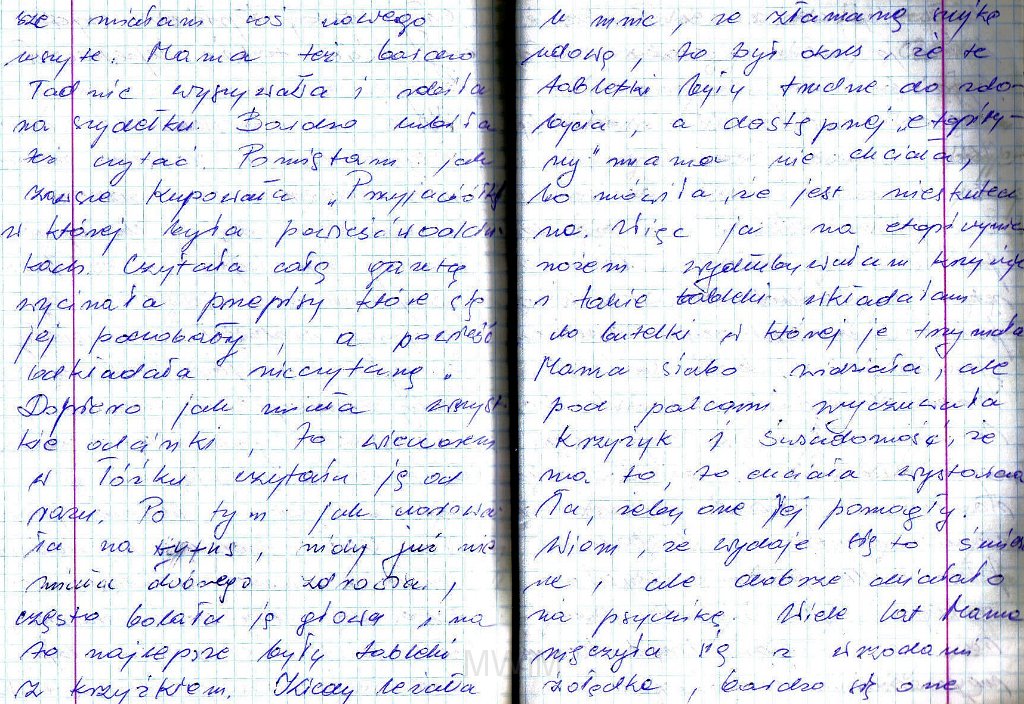 że miałam coś nowego
uszyte. Mama też bardzo
ładnie wyszywała i robiła
na szydełku. Bardzo lubiła
też czytać. Pamiętam jak
zawsze kupowała „Przyjaciółkę
w której była powieść w odcin
kach. Czytała całą gazetę
wycinała przepisy które się
jej podobały, a powieść
odkładała nieczytaną.
Dopiero jak miała wszyst
kie odcinki, to wieczorem
w łóżku czytała ją od
razu. Po tym jak chorowa
ła na tyfus, nigdy już nie
miała dobrego zdrowia,
często bolała ją głowa i na
to najlepsze były tabletki
z krzyżykiem. Kiedy leżała
u mnie, ze złamaną szyjką
udową, to był okres, że te
tabletki były trudne do zdo-
bycia, a dostępnej „etopiry-
ny" mama nie chciała,
bo mówiła, że jest nieskutecz
na. Więc ja na etopirynie
nożem wydłubywałam krzyżyk
i takie tabletki wkładałam
do butelki w której je trzymała
Mama słabo widziała, ale
pod palcami wyczuwała
krzyżyk i świadomość, że
ma to, to chciała wystarcza
ła, żeby one jej pomogły.
Wiem, że wydaje się to śmiesz
ne, ale dobrze działało
na psychikę. Wiele lat Mama
męczyła się z wrzodami
żołądka, bardzo się one
MWM